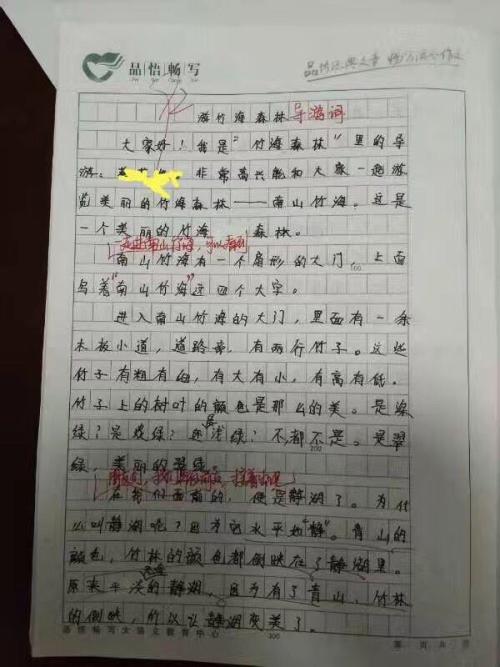 品悟畅写
品悟经典文章 畅写满分作文
游竹海森林导游词
大家好！我是“竹海森林”里的导
游：非常高兴能和大家一起游
览美丽的竹海森林——南山竹海。这是
一个美丽的竹海 森林。
走进南山竹海，可以看到
南山竹海有一个扇形的大门，上面
写着“南山竹海”这四个大字。
100
进入南山竹海的大门，里面有一条
木板小道，道路旁，有两行竹子。这些
竹子有粗有白，有大有小，有高有低。
竹子上的树叶的颜色是那么的美。是深
绿？是嫩绿？还是浅绿？不，都不是。是翠
200
绿，美丽的翠绿
在我们西面的，便是静湖了。为什
么叫静湖呢？因为它水平如“静”。青山的
颜色，竹林的颜色都倒映在了静湖里。
原来平淡的静湖，因为有了青山，竹林
的倒映，所以让静湖变美了。
品悟畅写大语文教育中心
300
第 页 共 页